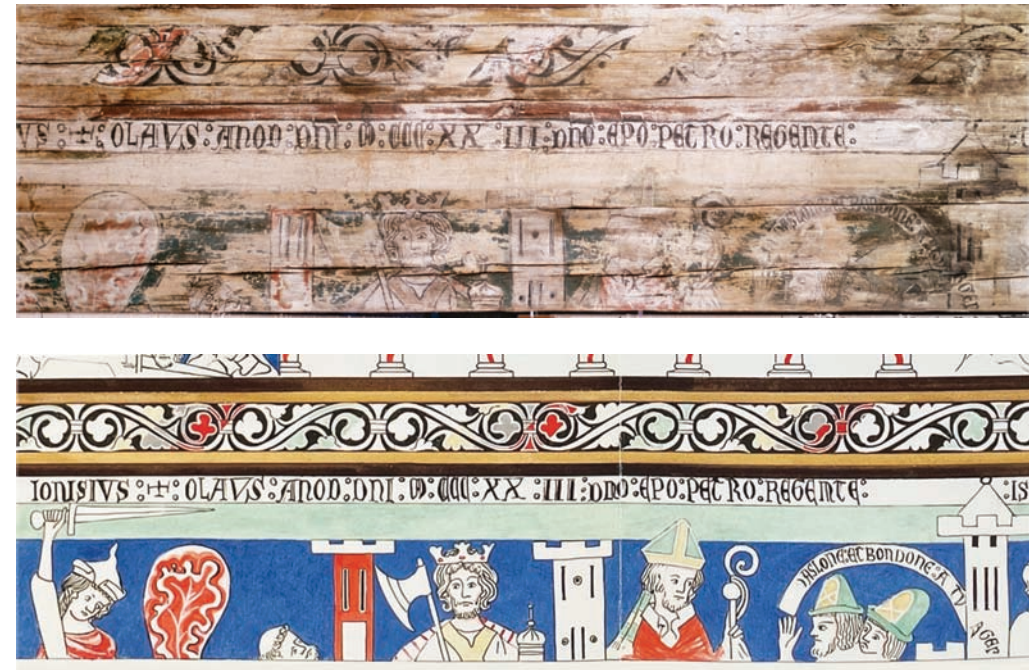 VS : + : OLAVS : ANOD : DNI : M : CCC : XX : III : DNO : EPO : PETRO : REGENTE :
IASLONE : ET BONDONE
IONISIVS : + : OLAVS : ANOD : DNI : M : CCC : XX : III : DNO : EPO : PETRO : REGENTE : : IS
IASLONE : ET BONDONE : A TV
AGER